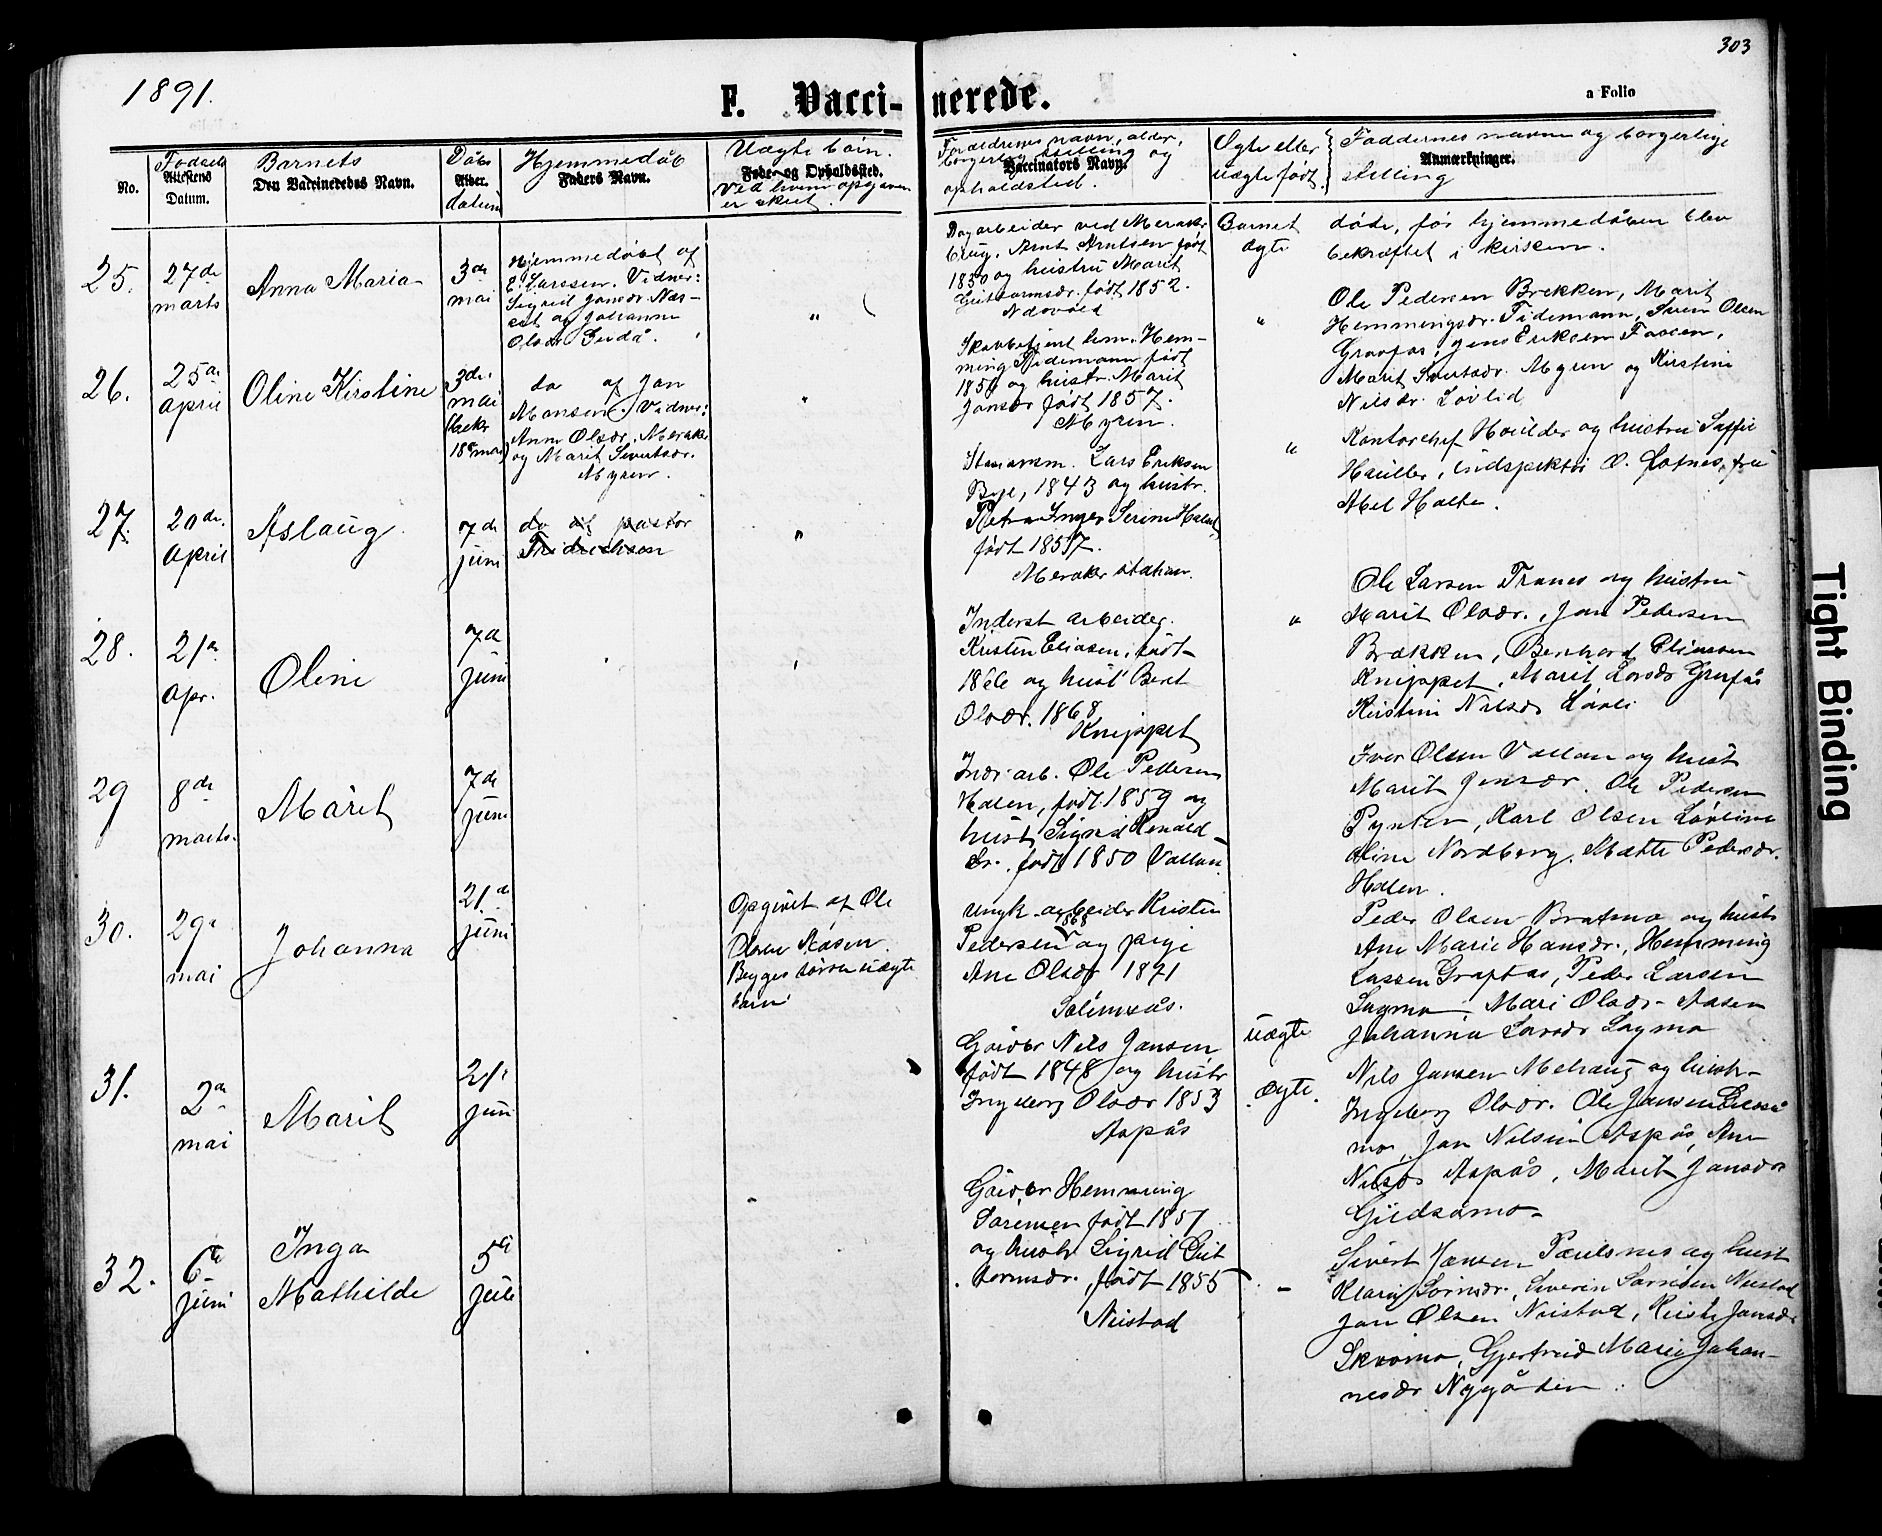 303
1891.
F. Vacci-nerede.
a Folio
No.
Fødsels
Attestens
Datum.
Barnets
Den Vaccineredes Navn.
Dåbs
Alder.
datum
Hjemmedåb
Faders Navn.
Uægte børn.
Føde- og Opholdssted.
Ved hvem opgaven
er skeet.
Forældrenes navn, alder,
borgerlig stilling og
Vaccinators Navn.
opholdsted.
Ægte eller
uægte født.
Faddernes navn og borgerlige
Anmærkninger.
stilling
25.
27de
marts
Anna Maria
3de
mai
Hjemmedøbt af
E. Larssen. Vidner:
Sigrid Jonsdr. Næs-
set og Johanna
Olsdr.
"
Dagarbeider ved Meraker
brug, Arnt Arntsen født
1850 og hustru Marit
Guttormsdr. født 1852.
Barnet
ægte
døde, før hjemmedåben blev
bekræftet i kirken.
26.
25de
April
Oline Kirstine
3die
mai
bekr
18de mai
do af Jon
Monsen. Vidner:
Anne Olsdr. Meraker
og Marit Sivertsdr.
Myren.
"
Skovbetjent Hem-
ming Tidemann født
1859 og hustr. Marit
Jonsdr født 1857.
Myren.
"
Ole Pedersen Brekken, Marit
Hemmingsdr. Tidemann, Olsen
Graafos, Jens Eriksen
Marit Sivertsdr. Myren og Kirstine
Nilsdr. Løvlid
27.
20de
April
Aslaug
7de
juni
do af pastor
Fridrichsen
"
Stasionsm. Lars Eriksen
Bye, 1843 og hustr.
Petra Inger Serine
født 1857.
Meraker station.
"
Kontorchef og hustru
O. Lofnes, fru
Abel
28.
21de
apr.
Oline
7de
juni
Inderst arbeider
Kristen Eliasen, født
1866 og hust Beret
Olsdr. 1868
Knippet
"
Ole Larsen Tranes og hustru
Marit Olsdr., Jon Pedersen
Brækken, Bernhard Eliassen
Knippet, Marit Larsdr Grafås
Kirstine Nilsdr Løvli
29
8de
marts.
Marit
7de
juni
Indr. arb. Ole Pedersen
Halen, født 1859 og
hust Sigrid
dr. født 1850 Vallan.
Iver Olsen Vallan og hust
Marit Jensdr. Ole Pedersen
Pynten, Karl Olsen
Oline Nordberg, Mætte Pedersdr.
Halen.
30.
29de
mai
Johanna
21de
juni
Opgivet af Ole
Olsen Åsen.
Begges første uægte
barn
Ungk. arbeider Kristen
Pedersen 1868 og pige
Ane Olsdr 1871
uægte
Peder Olsen Bratmo og hustr
Ane Marie Hansdr., Hemming
Lassen Grafaas, Peder Larsen
Sagmo Mari Olsdr. Aasen
Johanna Larsdr Sagmo
31.
2den
mai
Marit
21de
juni
Gårdbr Nils Jansen
født 1848 og hustr
Ingeborg Olsdr 1853
Aspås
ægte.
Nils Jansen Mehaug og hustr.
Ingeborg Olsdr. Ole Jansen
mo, Jon Nilsen Aspås, Ane
Nilsdr Aspås, Marit Jonsdr
Gudåmo
32.
6te
juni
Inga
Mathilde
5te
juli
Gårdbr Hemming
Sørensen født 1857
og hustr Sigrid Gut
tormsdr., født 1855
Nustad
Sivert Jansen og hust
Søvrindr., Severin Nustad
Jon Olsen Nustad, Jonsdr
Skromo, Gjertrud Marie Johan-
nesdr Nygården.
Tight Binding